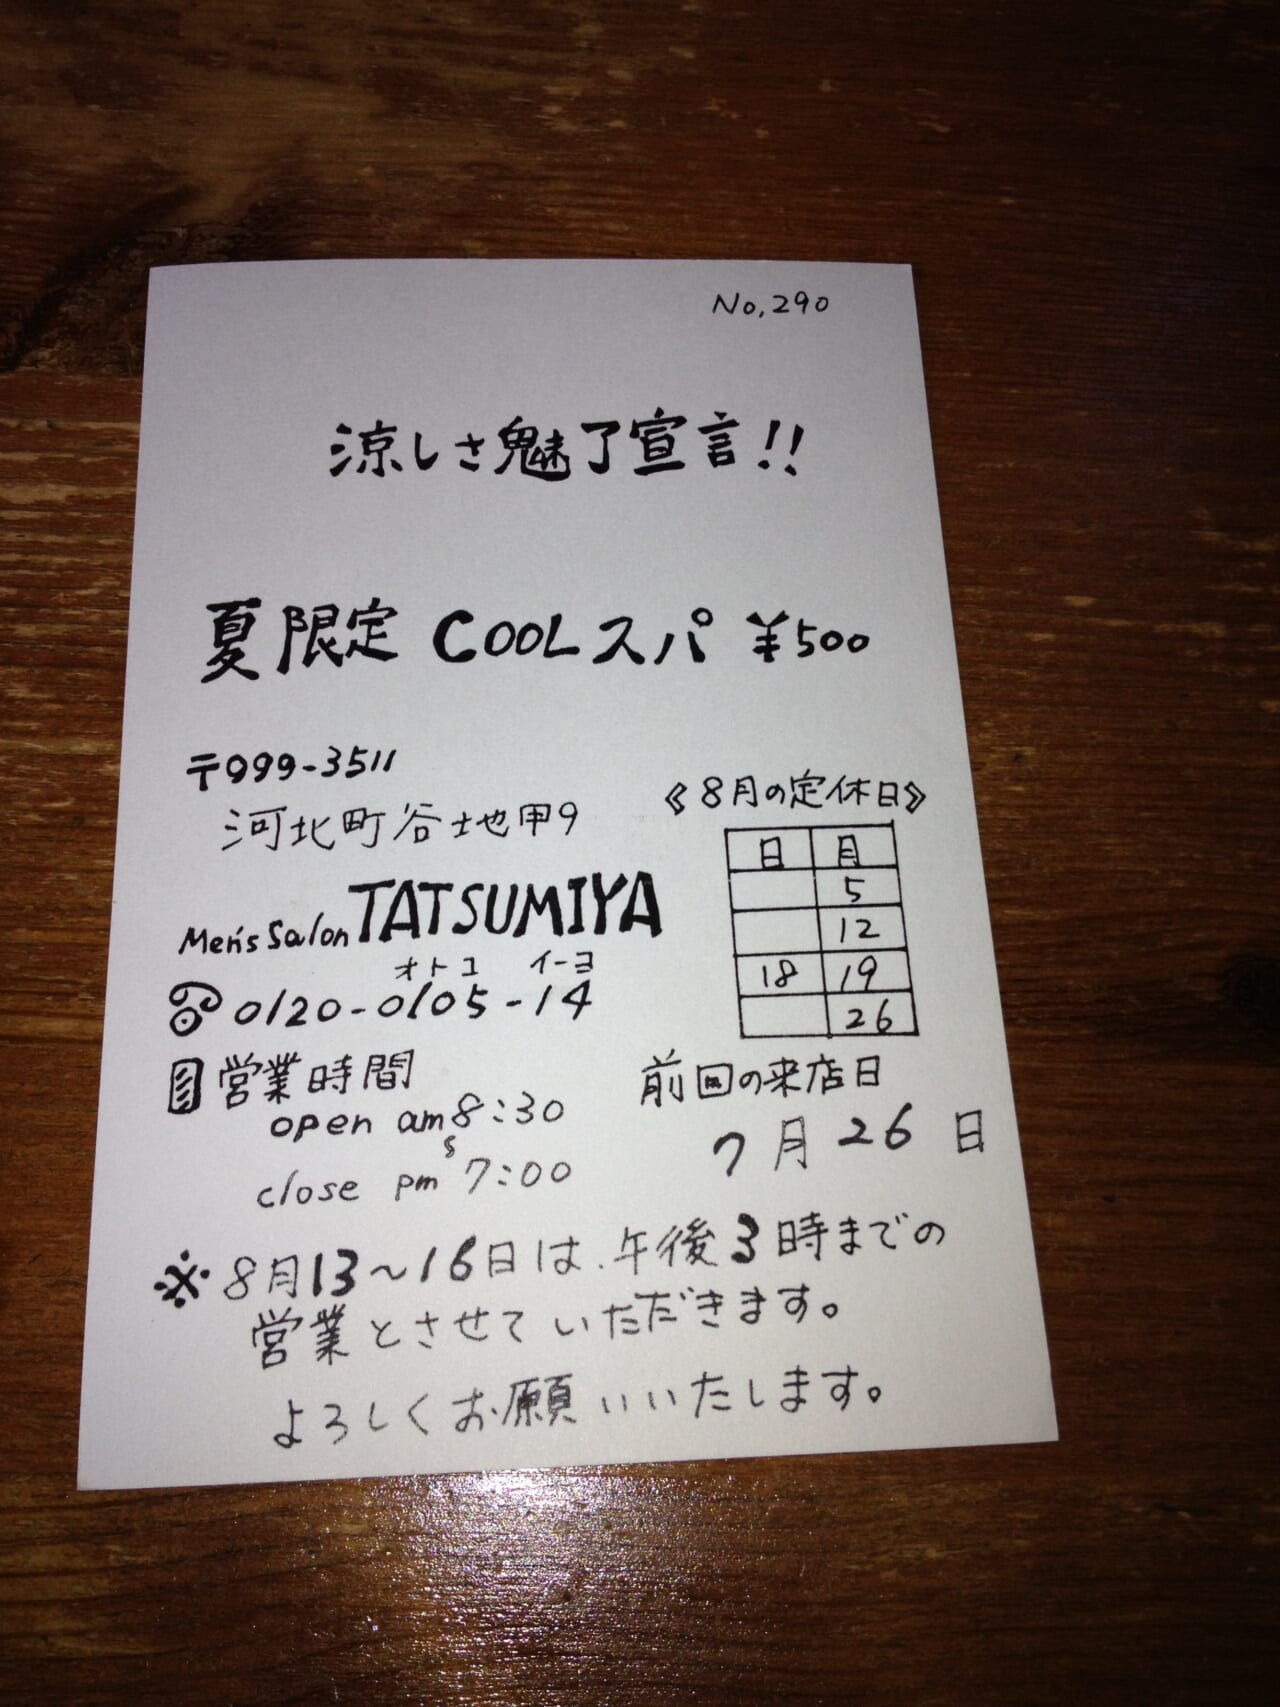 No,290
涼しさ魅了宣言!!
夏限定 COOLスパ ¥500
〒999-3511
河北町谷地甲9
Men's Salon TATSUMIYA
オトコ イーヨ
0120-0105-14
営業時間
open am 8:30
close pm 7:00
《8月の定休日》
日 月
5
12
18 19
26
前回の来店日
7月26日
※8月13~16日は、午後3時までの
営業とさせていただきます。
よろしくお願いいたします。